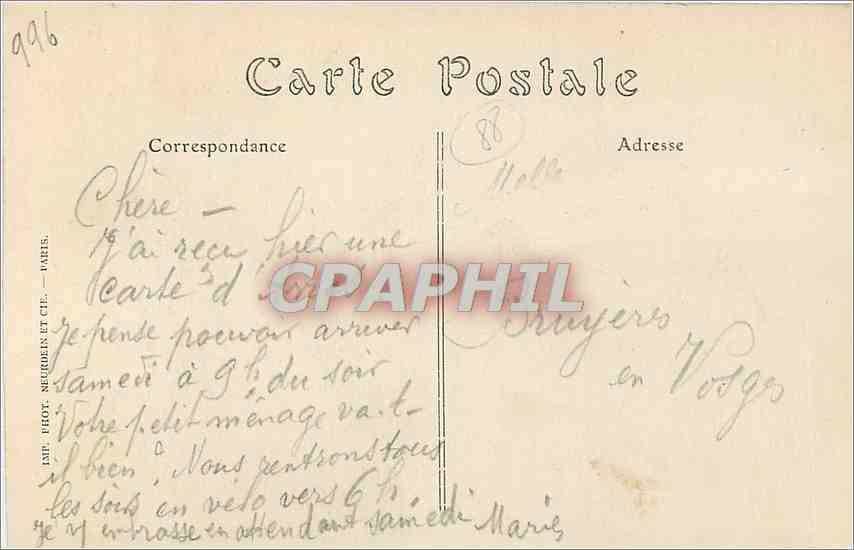 996
Carte Postale
Correspondance
Adresse
88
Chère —
J'ai reçu hier une
carte d'
Je pense pouvoir arriver
samedi à 9h du soir
Votre petit ménage va-t-
il bien? Nous rentrons tous
les soirs en vélo vers 6h
Je vs embrasse en attendant samedi Marie
Melle
Bruyères
en Vosges
IMP. PHOT. NEURDEIN ET CIE. — PARIS.
CPARHIL